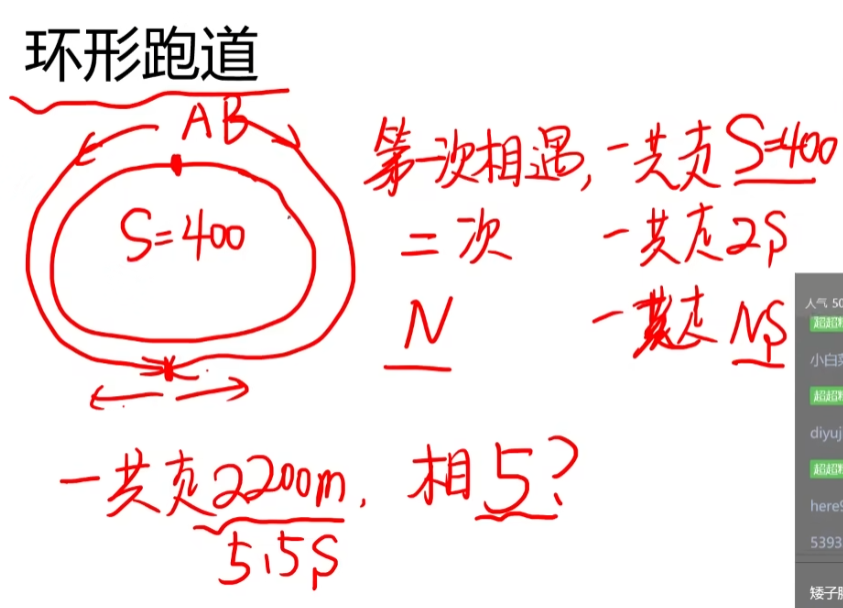 环形跑道
A B
S=400
第一次相遇,一共走 S=400
二次 一共走2S
N 一共走 NS
一共走2200m, 相5?
5.5S
人气 50
小白菜
diyuj
here9
5393
矮子